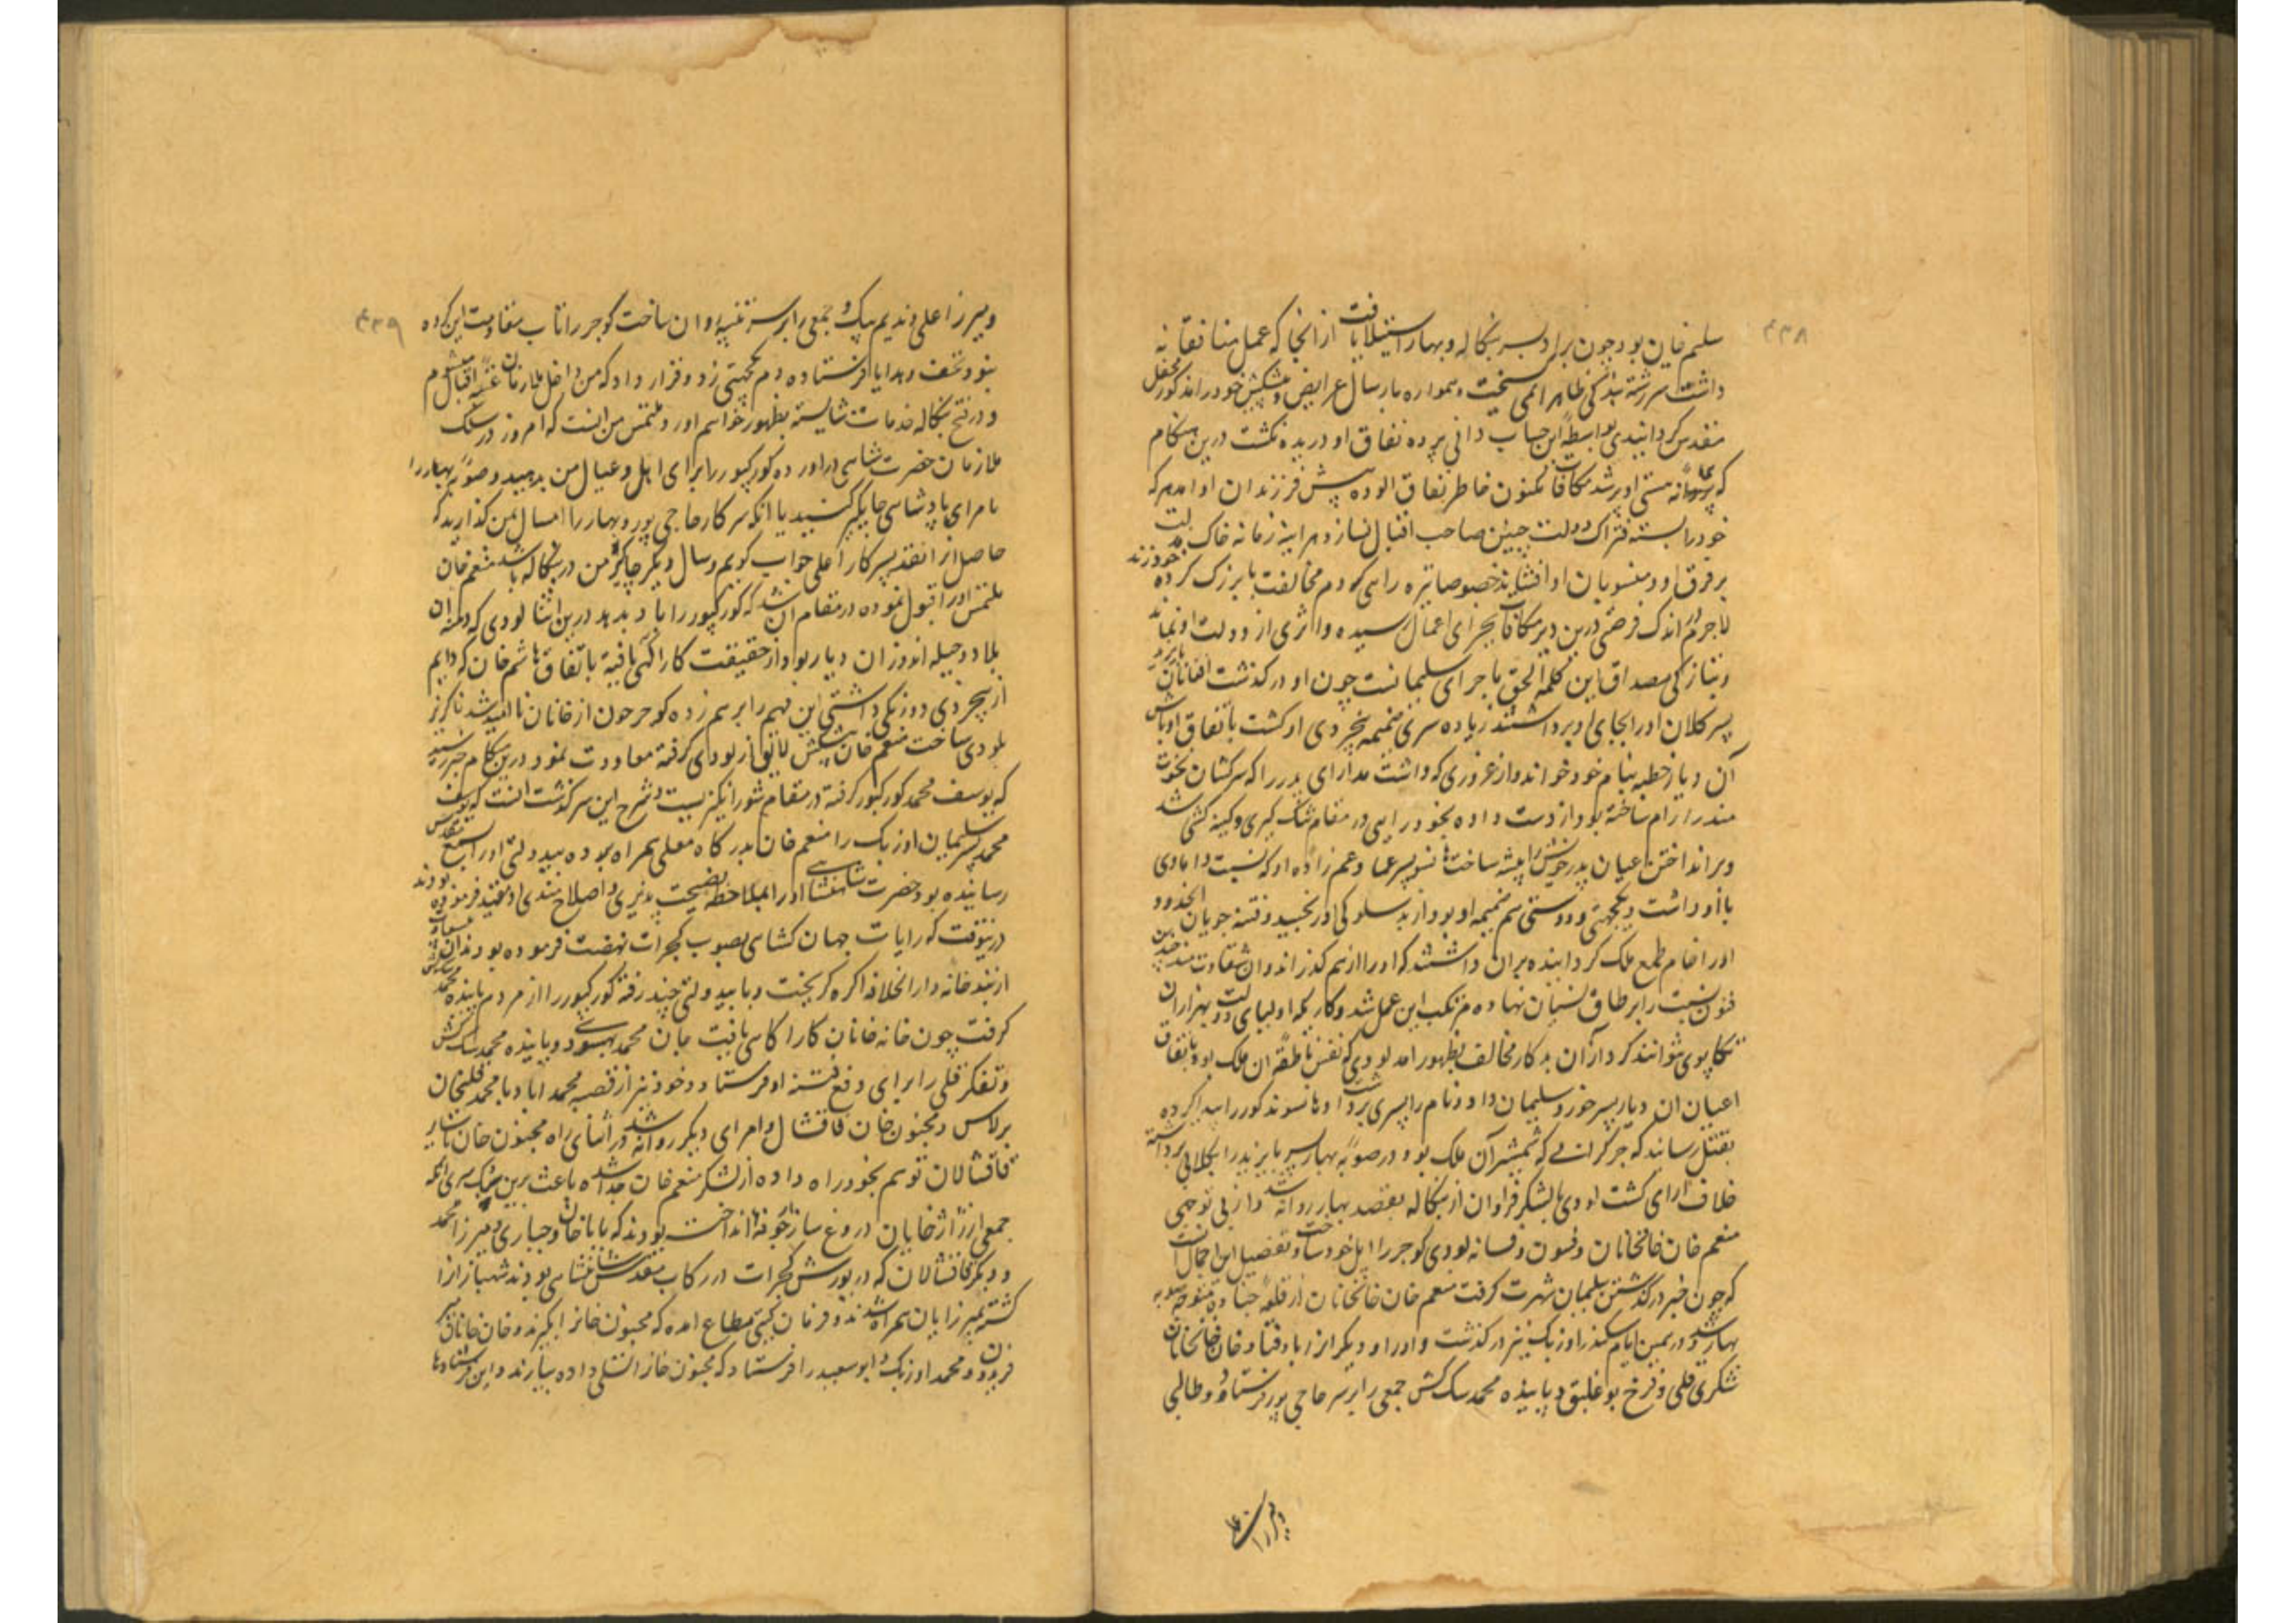 ۴۳۸
سلیم خان بود چون برادر بسر بنگاله و بهار استیلا یافت از انجا که عمل منافقانه
داشت سررشته بندگی ظاهرا می سخت و همواره بارسال عرایض و پیشکش خود را مذکور محفل
مقدس کردانیدی بواسطه این حساب دانی پرده نفاق او دریده نکشت درین هنکام
که پیمانه هستی او پر شد مکافات مکنون خاطر نفاق الوده پیش فرزندان او امد هر که
خود را بسته فتراک دولت چنین صاحب اقبال نسازد هراینه زمانه خاک
بر فرق او و منسوبان او افشاند خصوصا تیره رایی که دم مخالفت با بزرک کرده خود زند
لاجرم در اندک فرصتی درین دیر مکافات بجرای اعمال رسیده و اثری از دولت او نماند
و بتازکی مصداق این کلمه الحق ماجرای سلیمانست چون او در کذشت افغانان بایزید
پسر کلان او را بجای او برداشتند زیاده سری ضمیمه بیخردی او کشت باتفاق اوباش
آن دیار خطبه بنام خود خواند و از غروری که داشت مدارای پدر را که سرکشان
هند را رام ساخته بود از دست داده بخود رایی در مقام تنک کیری و کینه کشی شد
و برانداختن عیان پدر خویش را پیشه ساخت هانسو پسر عماد عم زاده او که نسبت دامادی
با او داشت و یکجهتی و دوستی هم ضمیمه او بود از بدسلوکی او رنجید و فتنه جویان انحدود
او را خام طمع ملک کردانیده بران داشتند که او را از هم کذراند و ان شقاوت مند چندین
فنون نسبت را بر طاق نسیان نهاده مرتکب این عمل شد و کاریکه اولیای دولت بهزاران
تکاپوی نتوانند کرد از آن بدکار مخالف بظهور امد لودی که نفس ناطقه ان ملک بود باتفاق
اعیان ان دیار پسر خورد سلیمان داود نام را بسری برداشت و هانسو مذکور را پیدا کرده
بقتل رساند کوجر کرانی که شمشیر آن ملک بود در صوبه بهار پسر بایزید را بکلانی برداشته
خلاف ارای کشت لودی با لشکر فراوان از بنکاله بقصد بهار روانه شد و از بی توجهی
منعم خان خانخانان و فسون و فسانه لودی کوجر را ایل خود ساخت و تفصیل این اجمال انست
که چون خبر درکذشتن سلیمان شهرت کرفت منعم خان خانخانان از قلعه چناده متوجه صوبه
بهار شد و در همین ایام سکندر اوزبک نیز در کذشت و او را و دیکر از پا در فتاد خان خانخانان
شکری قلی و فرخ بوغلیق و پاینده محمد سک کش جمعی را بر سر حاجی پور فرستاد و طالبی
۴۳۹
و میرزا علی و ندیم بیک و جمعی را بر سر تنیه روان ساخت کوجر را تاب مقاومت این کروه
نبود تحف و هدایا فرستاده دم یکجهتی زد و قرار داد که من داخل ملازمان عتبه اقبال میشوم
و در فتح بنکاله خدمات شایسته بظهور خواهم اورد ملتمس من انست که امروز در سلک
ملازمان حضرت شاهی دراورده کورکپور را برای اهل و عیال من بدهید و صوبه بهار را
بامرای پادشاهی جایکیر کنید یا انکه سرکار حاجی پور و بهار را امسال بمن کذارید که
حاصل انرا نقد بسرکار اعلی جواب کویم و سال دیکر جایکیر من در بنکاله باشد منعم خان
ملتمس او را قبول نموده در مقام ان شد که کورکپور را باو بدهد درین اثنا لودی که فطنه ان
بلاد و حیله اندوز ان دیار بود از حقیقت کار اکهی یافته باتفاق هاشم خان که دایم
از بیخردی دو رنکی داشتی این فهم را بر هم زده کوجر چون از خانان نا امید شد ناکزیر
بلودی ساخت منعم خان پیشکش لایق از لودی کرفته معاودت نمود درین هنکام خبر رسید
که یوسف محمد کورکپور کرفته در مقام شور انکیزیست و شرح این سرکذشت انست که یوسف
محمد پسر سلیمان اوزبک را منعم خان بدرکاه معلی همراه برده بیدولتی او را بسمع مقدس
رسانیده بود حضرت شاهنشاهی او را بملاحظه نصیحت پذیری و اصلاح مندی او مقید فرموده بودند
درینوقت که رایات جهان کشای بصوب کجرات نهضت فرموده بودند ان
از بندخانه دار الخلافه اکره کریخت و با بیدولتی چند رفته کورکپور را از مردم پاینده محمد سک کش
کرفت چون خانخانان کار اکاهی یافت جان محمد بهسودی و پاینده محمد سک کش
و تفکر قلی را برای دفع فتنه او فرستاد و خود نیز از قصبه محمد اباد با محمد قلیخان
برلاس و مجنون خان قاقشال و امرای دیکر روانه شد در اثنای راه مجنون خان با سایر
قاقشالان توهم بخود راه داده از لشکر منعم خان جدا شده باعث برین سبک سری انکه
جمعی از ژاژ خایان دروغ ساز آوازه انداخته بودند که بابا خان و جباری و میرزا محمد
و دیکر قاقشالان که در یورش کجرات در رکاب مقدس شاهنشاهی بودند شهباز را
کشته بمیرزایان همراه شدند و فرمان کیتی مطاع امده که مجنون خانرا بکیرند و خان خانان میر
فریدون و محمد اوزبک و ابو سعید را فرستاد که مجنون خانرا تسلی داده بیارند و این فرستادها